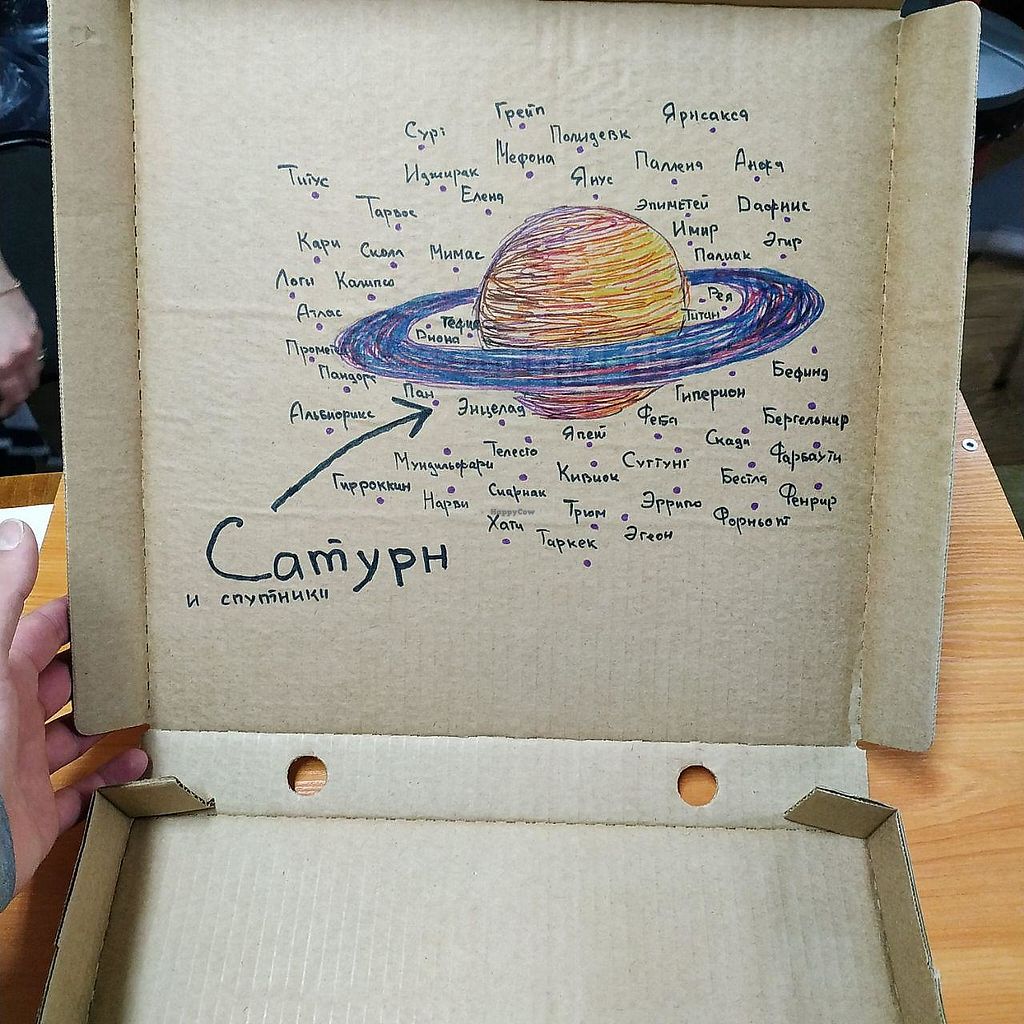 Грейп
Ярнсакса
Сурт
Полидевк
Мефона
Палленя
Анфа
Иджирак
Янус
Титус
Елена
Эпиметей
Дафнис
Тарвос
Имир
Эгир
Кари
Сколл
Мимас
Палиак
Логи
Калипсо
Рея
Атлас
Титан
Тефия
Диона
Промете
Пандора
Бефинд
Пан
Гиперион
Альбиорикс
Энцелад
Феба
Бергельмир
Япет
Скади
Телесто
Фарбаути
Мундильфари
Суттунг
Кивиок
Бестла
Гирроккин
Сиарнак
Нарви
Эррипо
Фенрир
HappyCow
Трюм
Форньот
Хати
Эгеон
Таркек
Сатурн
и спутники